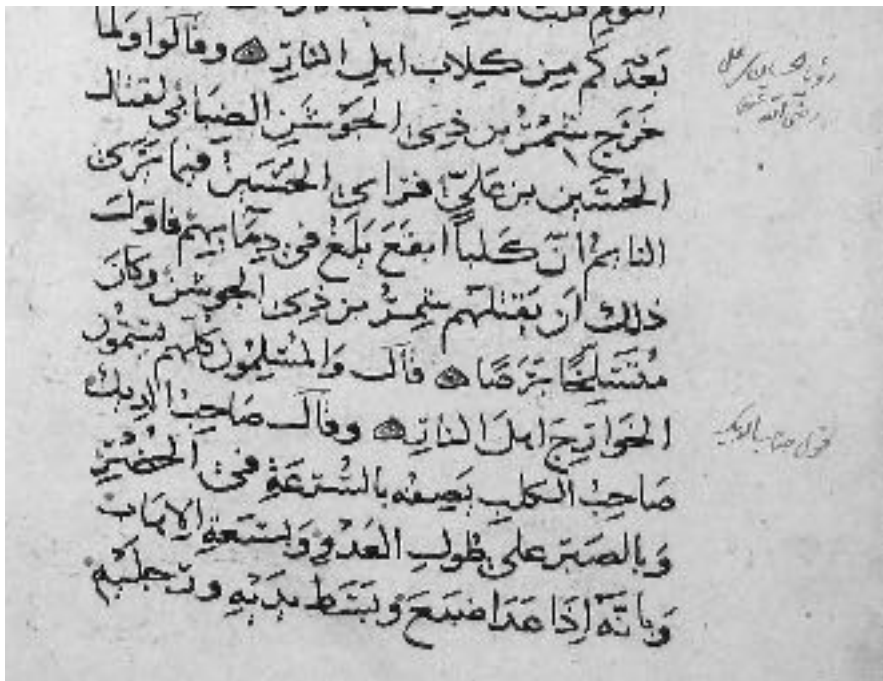 بَعْدَكُم مِن كِلاب اهلِ النارِ وقالوا ولما
خَرَج شَمِرُ بن ذِى الجَوشَنِ الضِبَابى لقتال
الحُسَين بن عَليّ فراى الحُسَين فيما يَرَى
النايمُ انّ كَلباً ابقَعَ يَلَغُ فى دِمَايهِم فاوَّلَ
ذلك ان يَقتلهم شمِرُ بن ذِى الجوشن وكانَ
مُنسَلِخًا بَرَصًا قال وَالمُسْلِمُون كلهم يسمّون
الخَوارجَ كلابَ النارِ وقال صَاحِبُ الديك
صَاحِبُ الكلبِ يَصِفه بالسُرعَةِ فى الحُضْرِ
وَبالصَبر على طولِ العَدْوِ وَبسَعَةِ الإِهَاب
وَبانّهُ إذَا عَدَا ضبَعَ وَبَسَط يَدَيْهِ ورِجلَيْهِ
رضى الله عنه
قول صاحب الديك